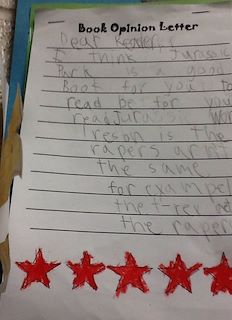 Book Opinion Letter
Dear
I think Jurassic
Park is a good
Book for you to
read be for you
read Jurassic Wor
1 reson is the
rapers arnt
the same
for exampel
the t-rex
the raper